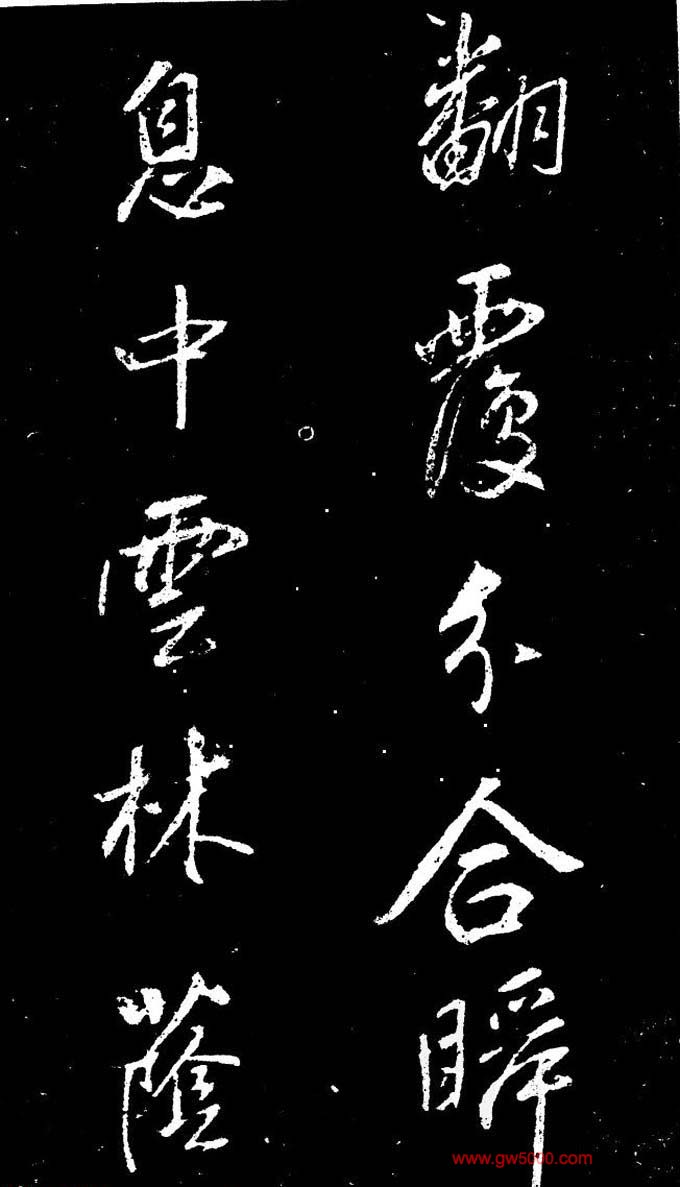 翻覆分合瞬
息中雲林蔭
www.gw5000.com